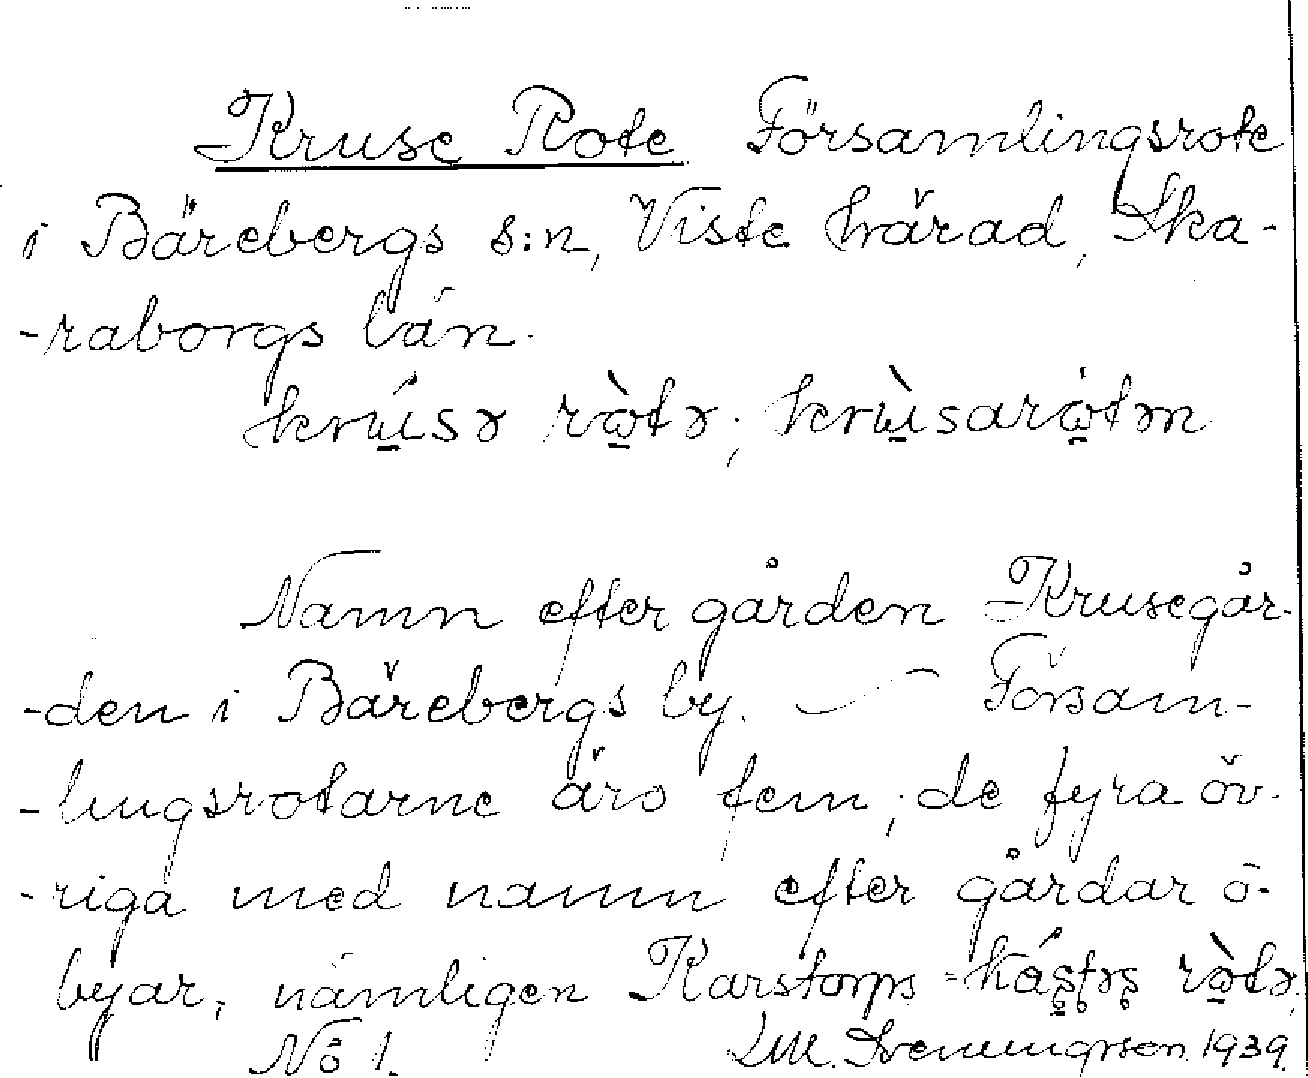 Kruse Rote Församlingsrote
i Bärebergs s:n, Viste härad, Ska-
-raborgs län.
krúsə ròtə; krùsarótən
Namn efter gården Krusegår-
-den i Bärebergs by. — Försam-
-lingsrotarne äro fem; de fyra öv-
-riga med namn efter gårdar o.
byar, nämligen Karstorps = káştəş ròtə,
No 1. 1939.